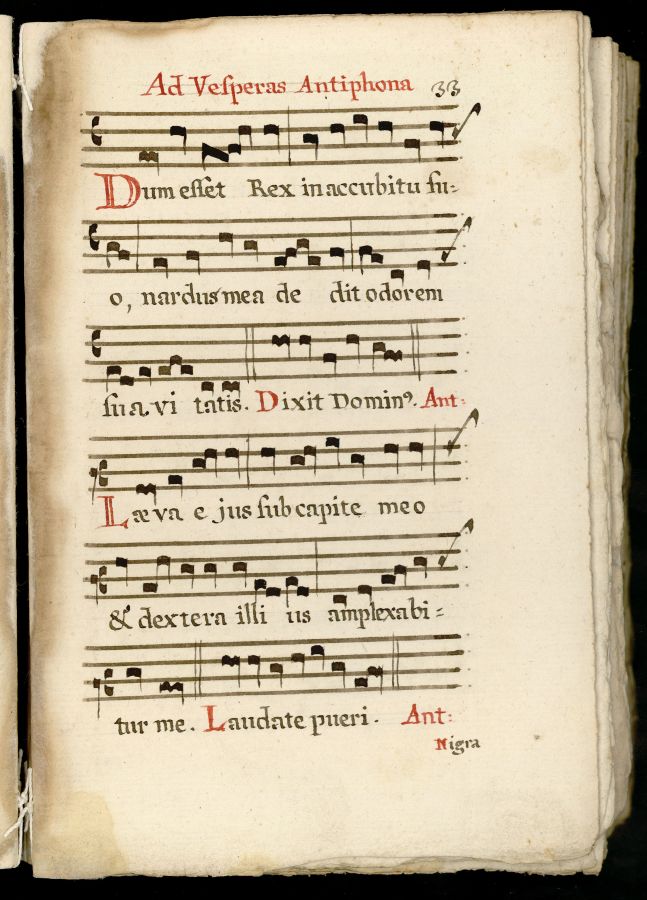 Ad Veſperas Antiphona 33
Dum eſſet Rex in accubitu ſu:
o, nardus mea de dit odorem
ſua vi tatis. Dixit Dominꝰ. Ant:
Læva e jus ſub capite meo
& dextera illi us amplexabi=
tur me. Laudate pueri. Ant:
Nigra